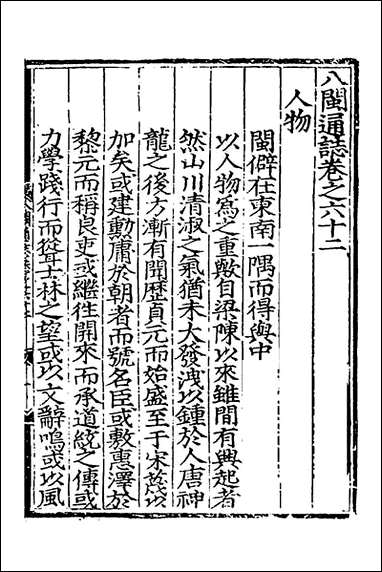 八閩通誌卷之六十二
人物
閩僻在東南一隅而得與中
以人物為之重數自梁陳以來雖間有興起者
然山川清淑之氣猶未大發洩以鍾於人唐神
龍之後方漸有聞歷貞元而始盛至于宋蔑以
加矣或建勳庸於朝者而號名臣或敷惠澤於
黎元而稱良吏或繼往開來而承道統之傳或
力學踐行而聳士林之望或以文辭鳴或以風